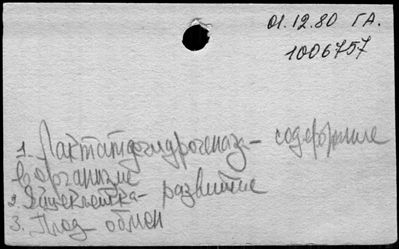 01.12.80 ГА.
1006757
1. Лактатдегидрогеназа - содержание
в организме
2 Яйцеклетка - развитие
3. Плод - обмен